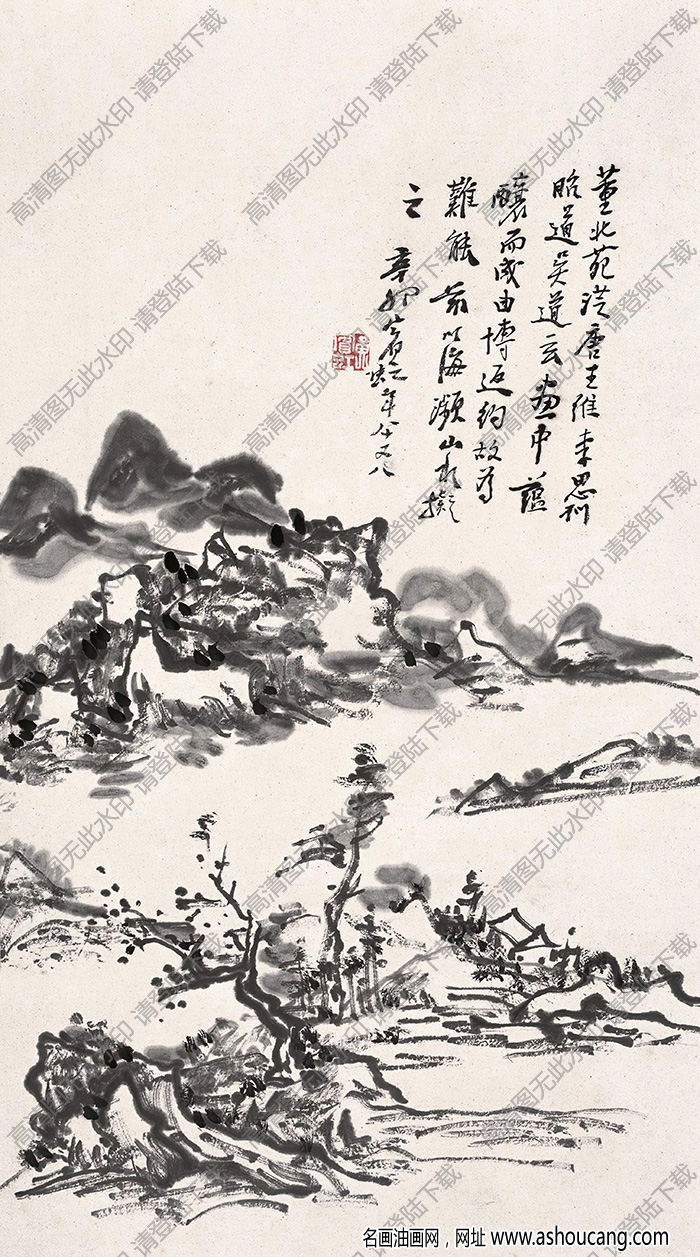 董北苑從唐王維李思訓
昭道吳道玄畫中蘊
釀而成由博返約故為
難能茲以海瀕山水擬
之
辛卯賓虹年八十又八
高清图无此水印 请登陆下载
名画油画网，网址 www.ashoucang.com